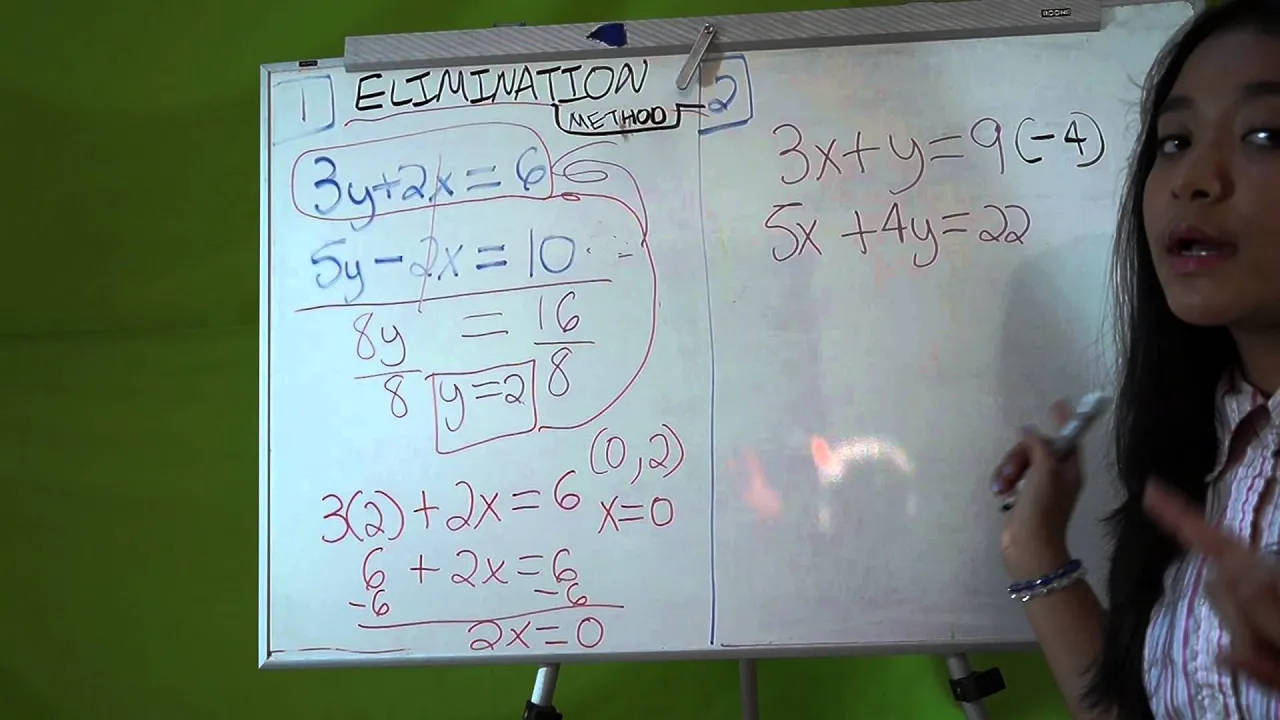 1
ELIMINATION
METHOD
3y+2x=6
5y-2x=10
8y = 16
8 8
y=2
(0,2)
3(2)+2x=6
x=0
6+2x=6
-6 -6
2x=0
2
3x+y=9(-4)
5x+4y=22